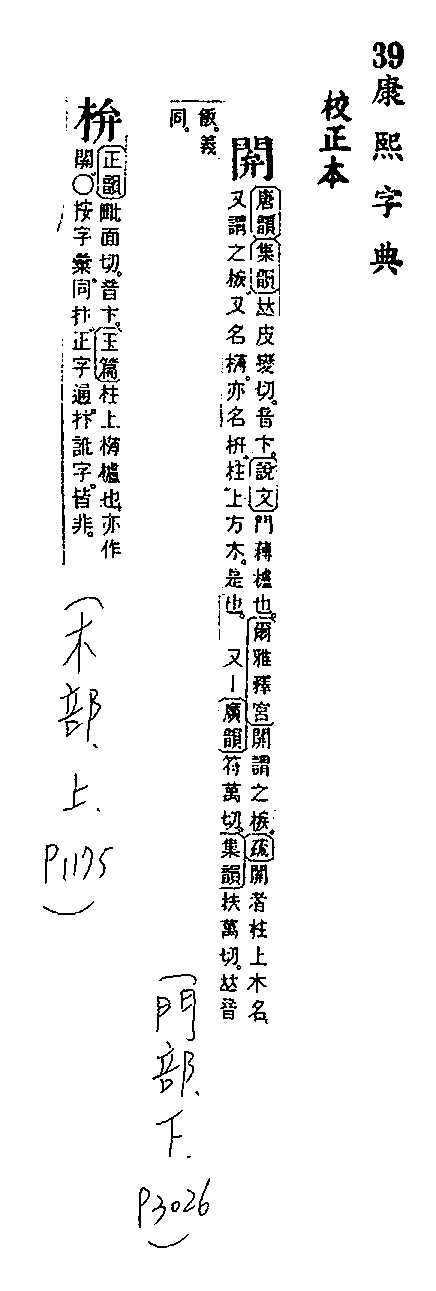 39康熙字典
校正本
閞
唐韻集韻𠀤皮變切。音卞。說文門欂櫨也。爾雅釋宮閞謂之槉。疏閞者柱上木名
又謂之槉又名欂。亦名枅柱上方木。是也。 又丨廣韻符萬切。集韻扶萬切。𠀤音
飯。義
同。
(門部、下、P3026)
㭓
正韻毗面切。音卞。玉篇柱上欂櫨也。亦作
閞○按字彙同抃。正字通抃訛字。皆非。
(木部、上、P1175)